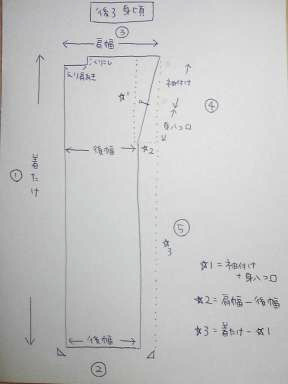 後ろ身頃
③
肩幅
くりこし
えり肩あき
袖付け
☆1
④
身八つ口
後幅
☆2
①
着たけ
⑤
☆3
☆1=袖付け
+身八つ口
☆2=肩幅-後幅
☆3=着たけ-☆1
後幅
②